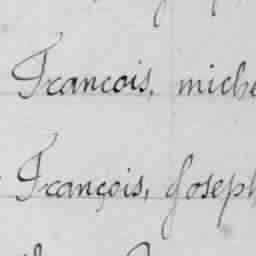 Francois, miche
François, Joseph